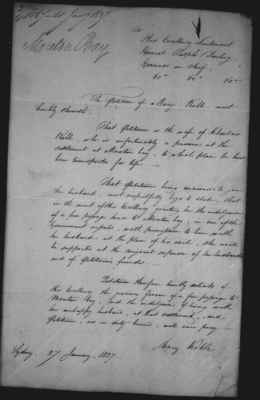 Moreton Bay
To
His Excellency Lieutenant
General Ralph Darling
Governor in Chief
&c &c &c
The Petition of Mary
humbly sheweth
That Petitioner is the wife of Charles
who is unfortunately a prisoner at the
settlement at Moreton Bay, to which place he has
been transported for life
That Petitioner being anxious to join
her husband, most respectfully begs to state, that
in the event of Your Excellency granting her the indulgence
of a free passage down to Moreton Bay, in one of the
Government vessels, with permission to live with
her husband, at the place of his exile, she would
be supported at the
and of Petitioners friends
Petitioner therefore humbly solicits of
Your Excellency the gracious favour of a free passage to
Moreton Bay, and the indulgence of living with
her unhappy husband, at that settlement, and
Petitioner, as in duty bound, will ever pray
Mary
Sydney 27 January 1827